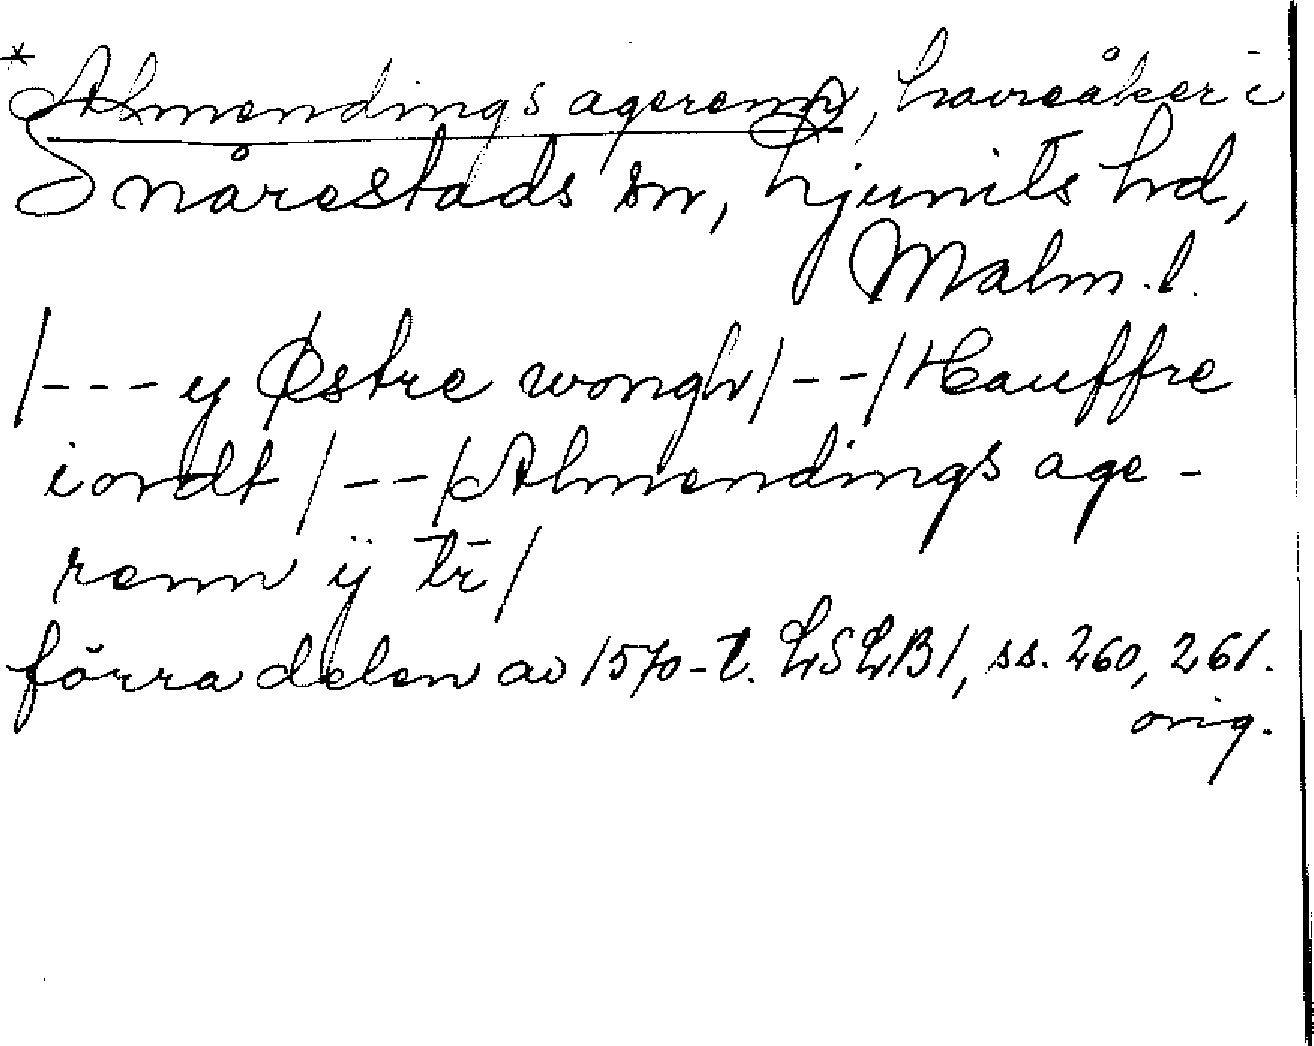 *Almendings agerenn, havreåker i
Snårestads sn, Ljunits hd,
Malm.l.
/--- y Østre wongh/--/Hauffre
iordt/--/Almendings age-
renn ÿ tr̄/
förra delen av 1570-t. LSLB1, ss. 260, 261.
orig.